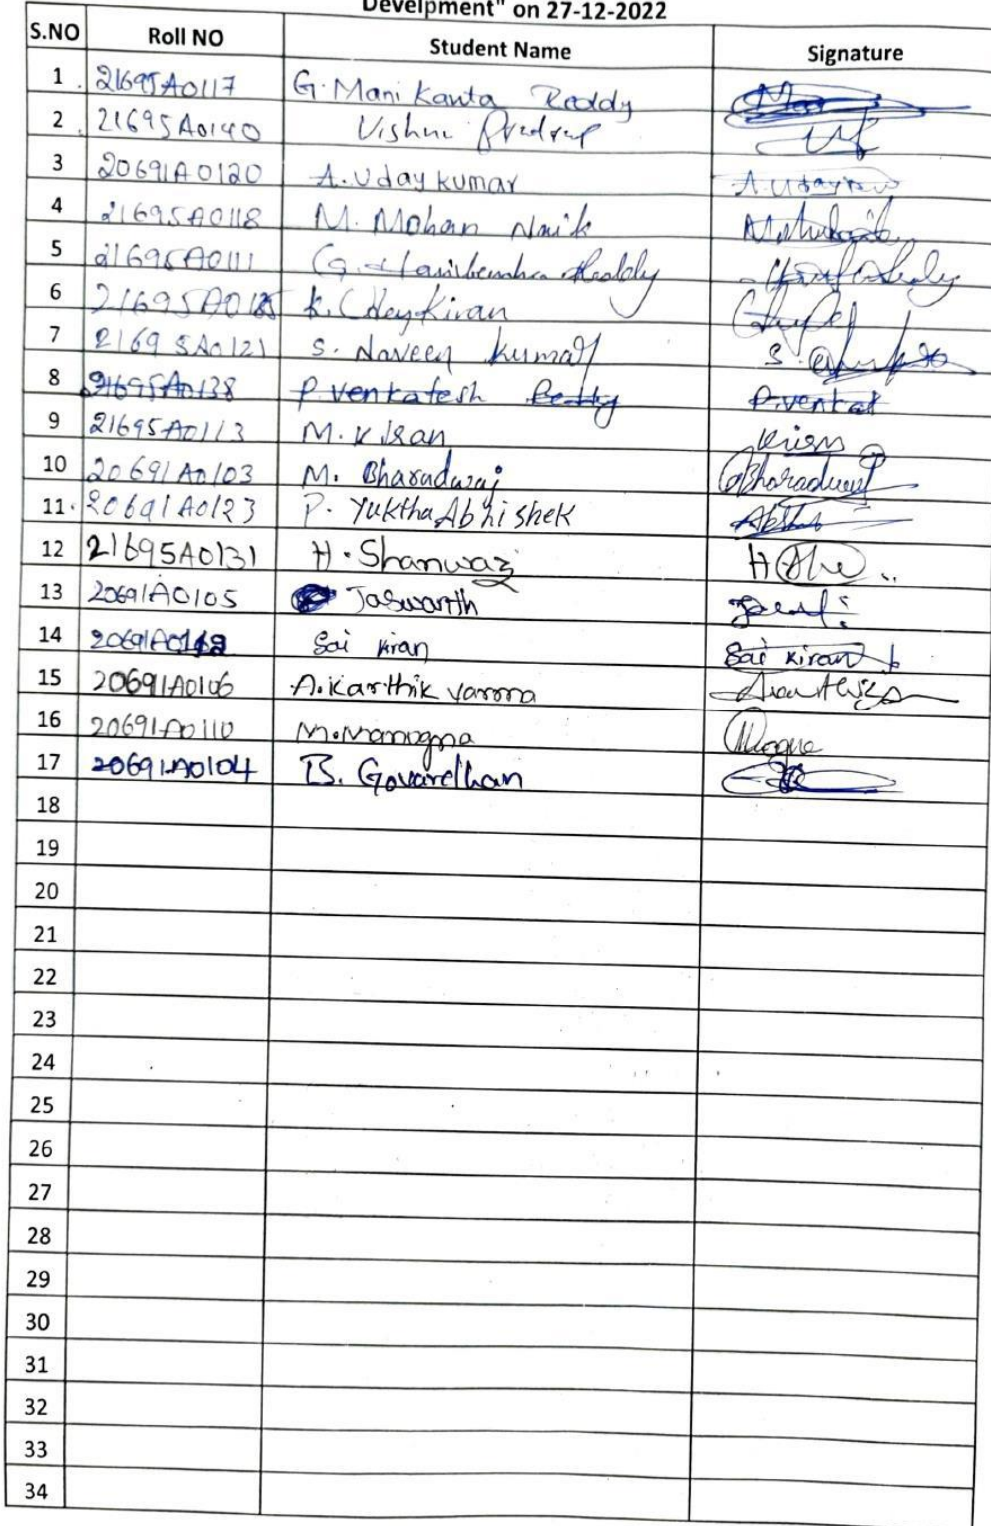 Develpment" on 27-12-2022
S.NO Roll NO Student Name Signature
1 21695A0117 G. Mani Kanta Reddy
2 21695A0140 Vishnu
3 20691A0120 A. Uday kumar A. Uday
4 21695A0118 M. Mohan Naik
5 21695A0111 G. Reddy
6 K. Udey Kiran
7 21695A0121 S. Naveen Kumar S.
8 21695A0138 P. Venkatesh Reddy P. Venkat
9 21695A0113 M. Kiran Kiran
10 20691A0103 M. Bharadwaj Bharadwaj
11. 20691A0123 P. Yuktha Abhishek
12 21695A0131 H. Shanwaz H
13 20691A0105 Jaswanth
14 Sai Kiran Sai Kiran
15 20691A0106 A. Karthik varma
16 20691A0110
17 20691A0104 B. Govardhan
18
19
20
21
22
23
24
25
26
27
28
29
30
31
32
33
34